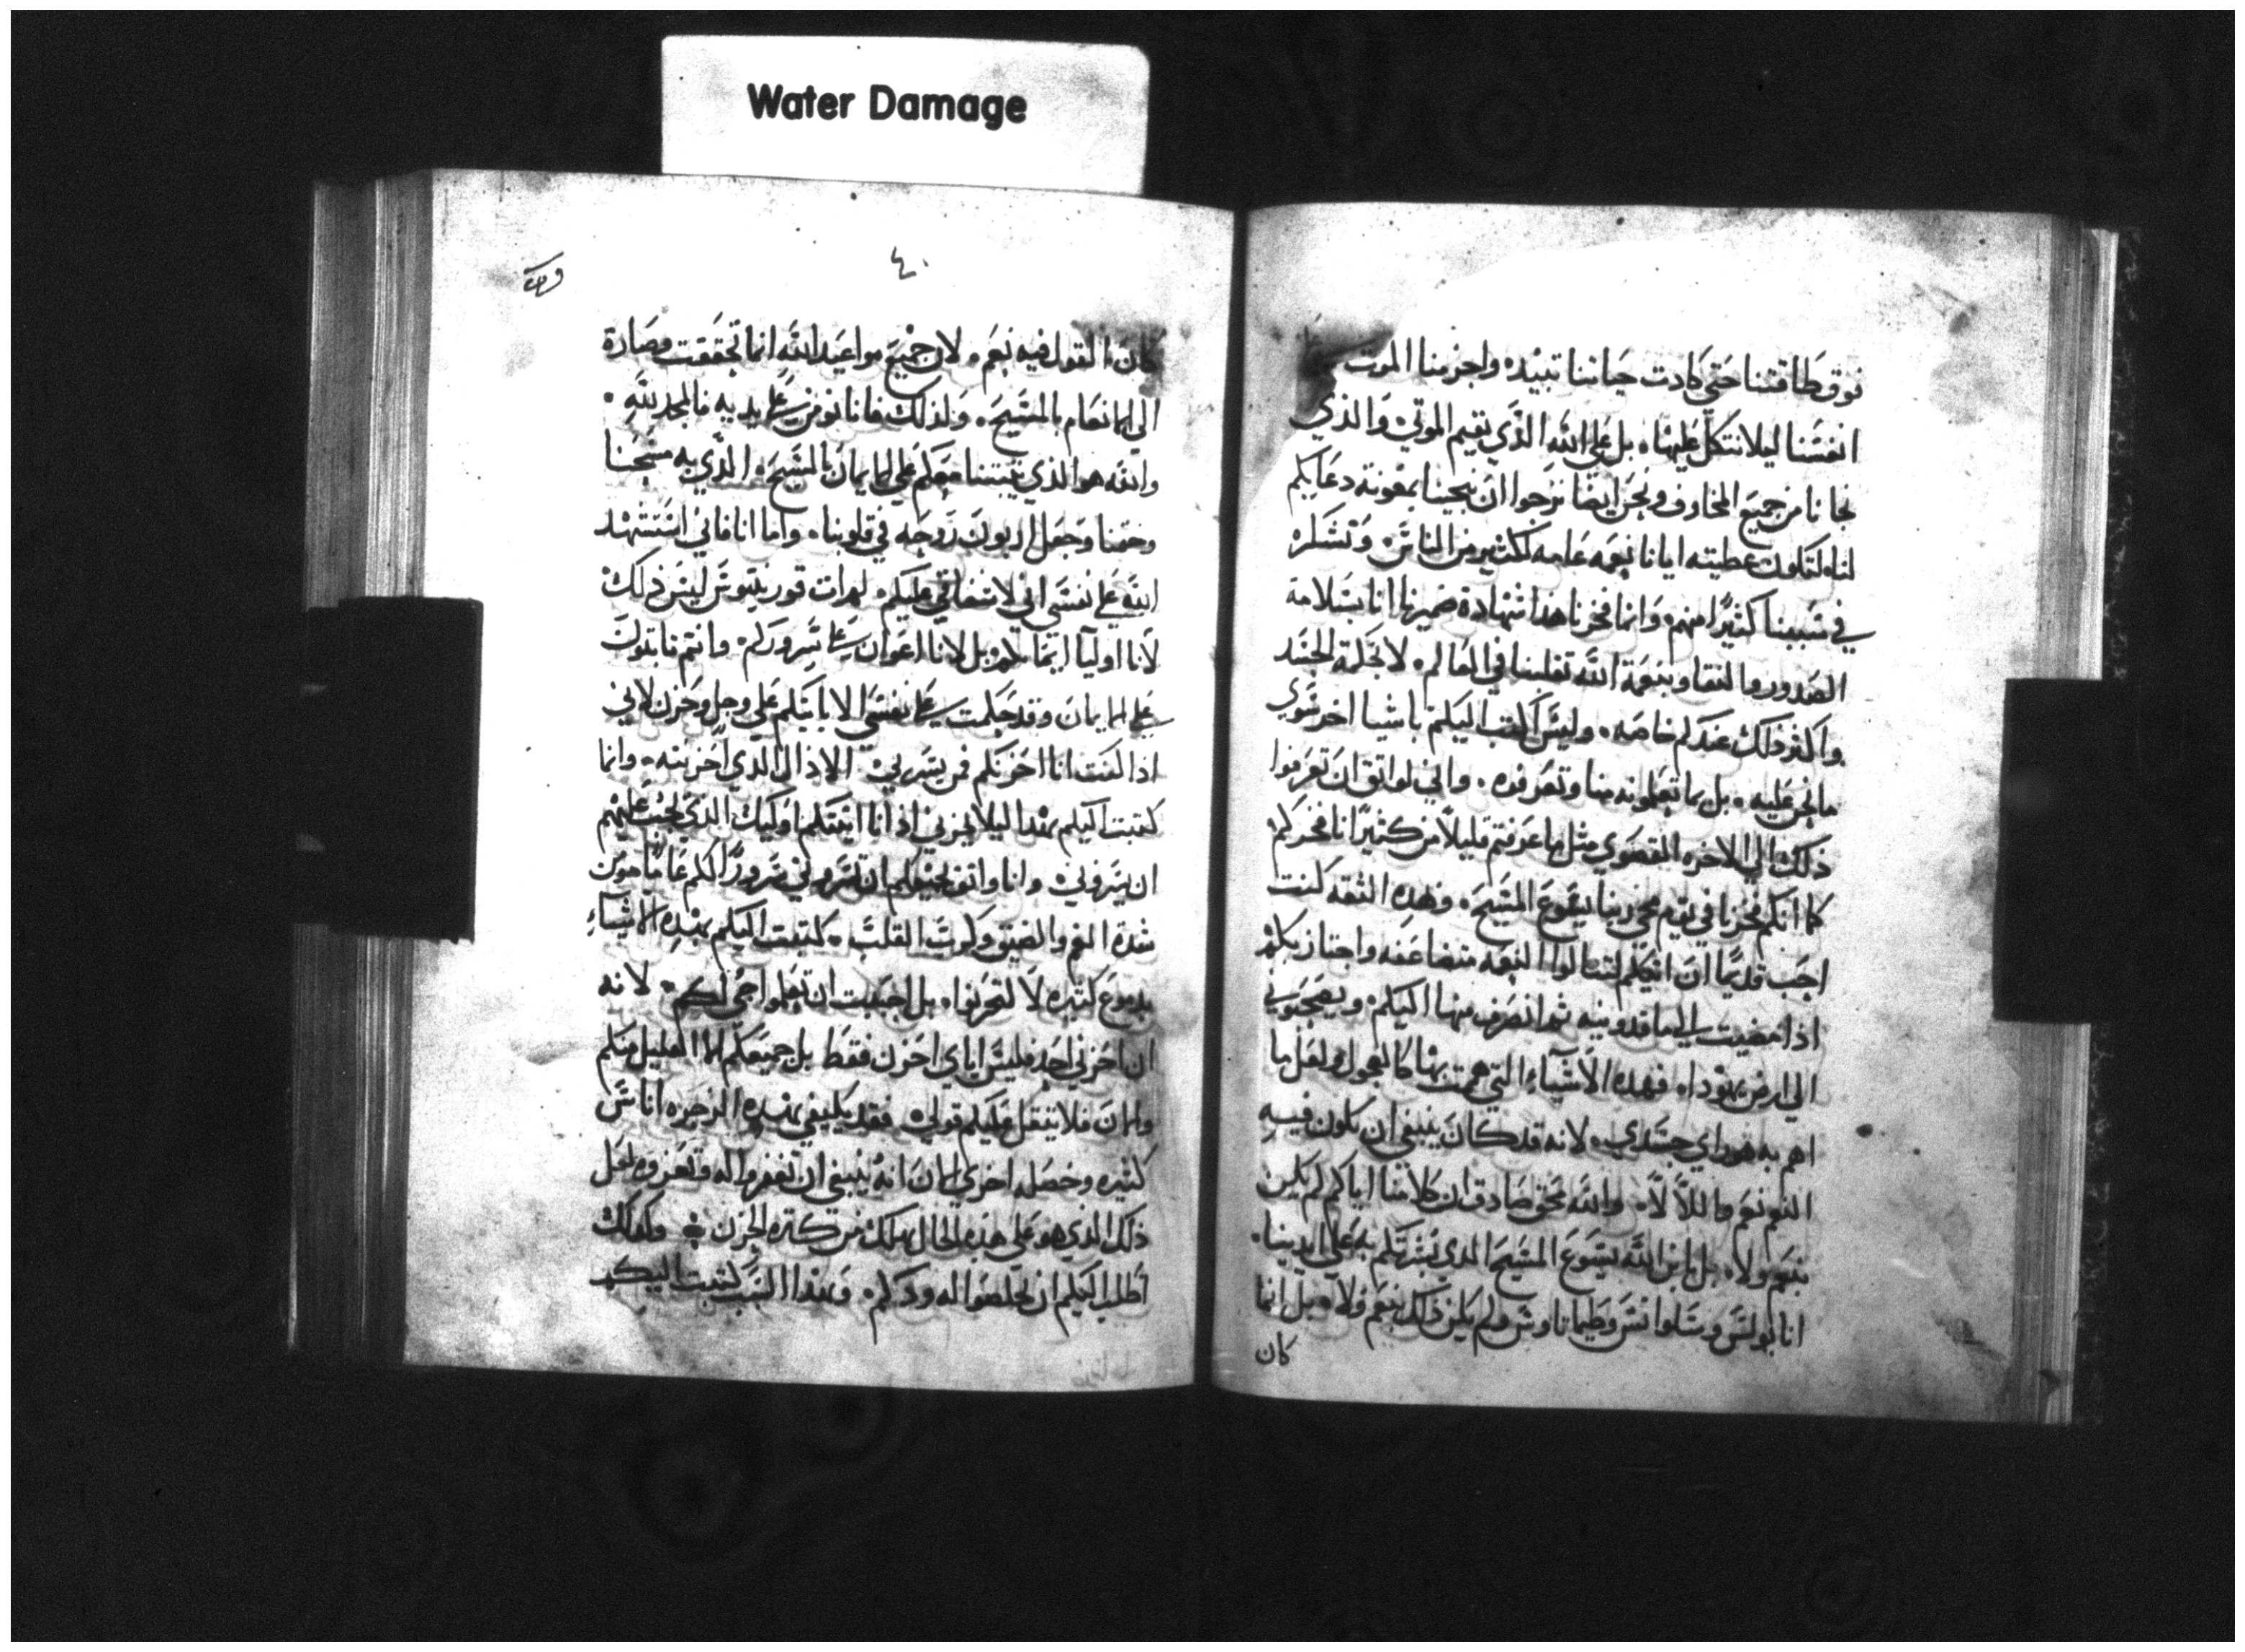 Water Damage
فوق طاقتنا حتي كادت حياتنا تبيده واجزمنا الموت
انفسنا ليلا نتكل عليها بل علي الله الذي يقيم الموتي والذي
نجانا من جميع المخاوف ونحن ايضا نرجوا ان ينجينا بمعونة دعايكم
لنا لتكون عطيته ايانا نعمه عامه لكثير من الناس وتشكره
في سببنا كثيرًا منهم وانما فخرنا هذا شهادة ضميرنا انا بسلامة
الصدور والنقا وبنعمة الله تقلبنا في العالم لا بحكمة الجسد
واكثر ذلك عندكم خاصه وليس اكتب اليكم باشيا اخر سوي
ما نحن عليه بل بما تعلمونه منا وتعرفوه واني لواثق ان تعرفوا
ذلك الي الاخره القصوي مثل ما عرفتم قليلاً من كثيرًا انا فخركم
كما انكم فخرنا في يوم مجي ربنا يسوع المسيح وبهذه الثقه كنت
احب قديمًا ان اتيكم لتنالوا النعمه متضاعفه واجتاز بكم
اذا مضيت الي ماقدونيه ثم انصرف منها اليكم وتصحبوني
الي ارض يهودا فهذه الأشيآء التي هممت بها كالعجول ولعل ما
اهم به هو راي جسدي لانه قد كان ينبغي ان يكون فيه
النعم نعم واللا لا والله محق صادق ان كلامنا اياكم لم يكن
بنعم ولا بل ابن الله يسوع المسيح الذي بشرتكم به علي ايدينا
انا بولس وسلوانس وطيماناوس ولم يكن ذلك بنعم ولا بل انما
كان
٤٠
كان القول فيه نعم لان جميع مواعيد الله انما تحققت وصارة
الي التمام بالمسيح ولذلك فانا نومن علي يديه فالمجد لله
والله هو الذي يثبتنا معكم علي الايمان بالمسيح الذي به مسحنا
وختمنا وجعل اربون روحه في قلوبنا واما انا فاني استشهد
الله علي نفسي اني لاشفاقي عليكم لم ات قورنيتوس ليس ذلك
لانا اوليآ ايمانكم بل لانا اعوان علي سروركم وانتم فاتبتون
علي الايمان وقد حكمت علي نفسي الا اتيكم علي وجل وحزن لاني
اذا كنت انا احزنكم فمن يسرني الا ذاك الذي احزنته وانما
كتبت اليكم بهذا ليلا يحزني اذا انا اتيتكم اوليك الذي يجب عليهم
ان يسروني وانا واثق بجميعكم ان سروري سرورًا لكم عامًا ومن
شدة الغم والضيق وكرب القلب كتبت اليكم بهذه الاشيآء
بدموع كتيره لا لتحزنوا بل احببت ان تعلموا حبي لكم لانه
ان احزني احد فليس اياي احزن فقط بل جميعكم الا القليل منكم
والان فلا يثقل عليكم قولي فقد يكفي بهذه الزجره اناس
كثيره وخصله اخري الان انه ينبغي ان تغفروا له وتعزوه لعل
ذلك الذي هو علي هذه الحال يهلك من كتره الحزن ولذلك
اطلب اليكم ان تخلصوا له ودكم ولهذا السبب كتبت اليكم